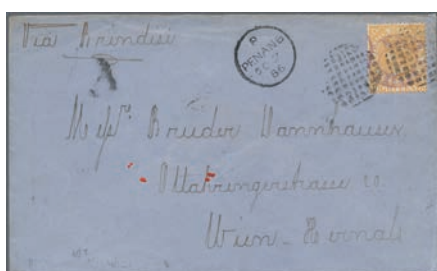 Via Brindisi
PENANG
86
Messrs. Bruder Dannhauser
Ottakringerstrasse 20
Wien - Hernals